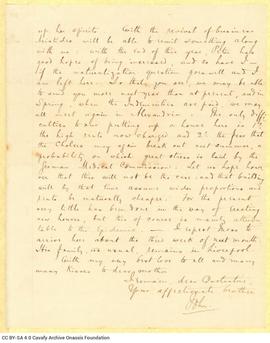 up her spirits. With the revival of business
Aristides will be able to remit something along
with us: with the end of this year, Peter has
good hopes of being increased, and so have I
if the naturalization question goes well and I
am left here. So that, you see, we may be able
to send you more next year than at present, and in
Spring, when the Indemnities are paid, we may
all meet again in Alexandria. The only diffi-
culties to our putting up a house here is
the high rents now charged and 2º the fear that
the Cholera may again break out next summer, a
probability on which great stress is laid by the
German Medical Commission. Let us hope how-
ever that this will not be the case and that building
will by that time assume wider proportions and
rents be naturally cheaper. For the present
very little has been done in the way of erecting
new houses, but this of course is mainly attribu-
table to the Epidemic. — I repeat
arrive here about the third week of next month.
His family, as usual, remains in Liverpool
With my very best love to all and many
many kisses to dearest mother
I remain, dear Constantine,
Your affectionate brother
John
CC BY-SA 4.0 Cavafy Archive Onassis Foundation